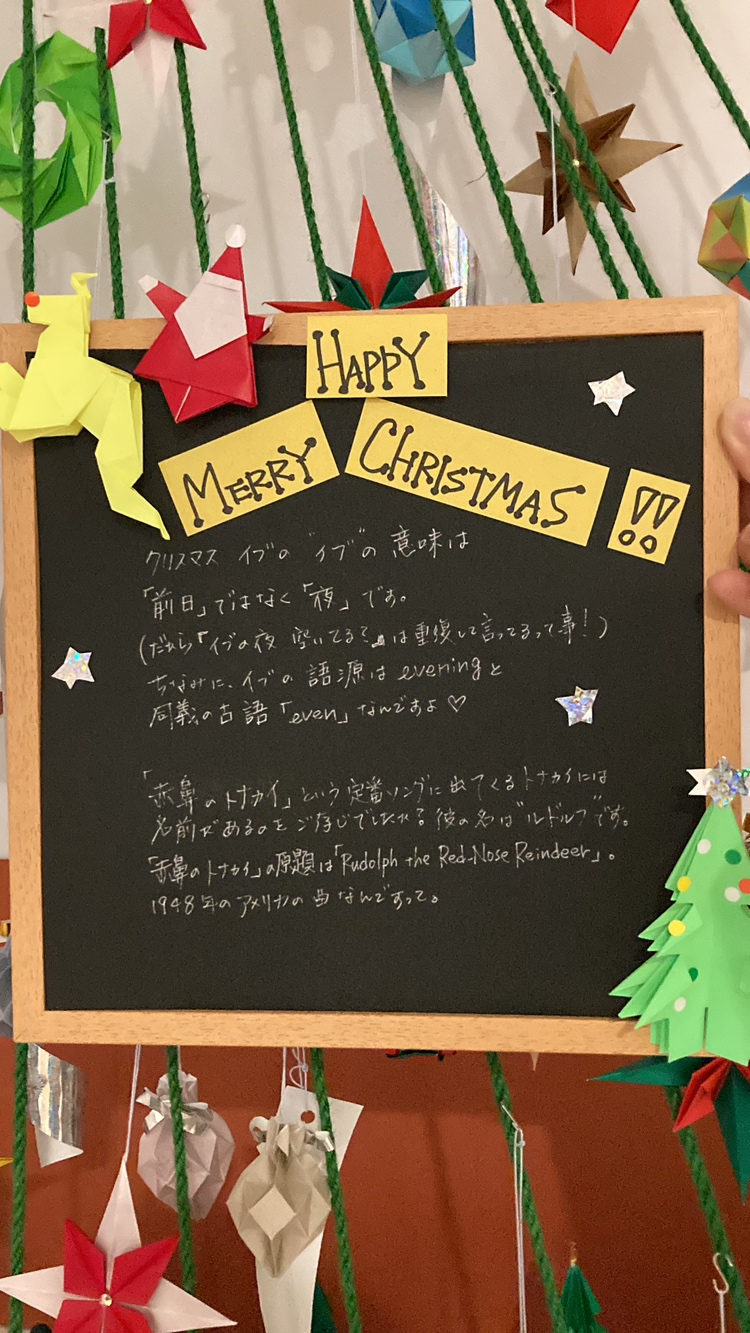 HAPPY
MERRY CHRISTMAS !!
クリスマス イブの "イブ"の 意味は
「前日」ではなく「夜」です。
(だから「イブの夜 空いてるて」は重複して言ってるって事!)
ちなみに、イブの 語源は eveningと
同義の古語「even」なんですよ♡
「赤鼻のトナカイ」という定番ソングに出てくるトナカイには
名前があるのをご存じでしたか?彼の名は"ルドルフ"です。
「赤鼻のトナカイ」の原題は「Rudolph the Red-Nose Reindeer」。
1948年のアメリカの曲なんですって。